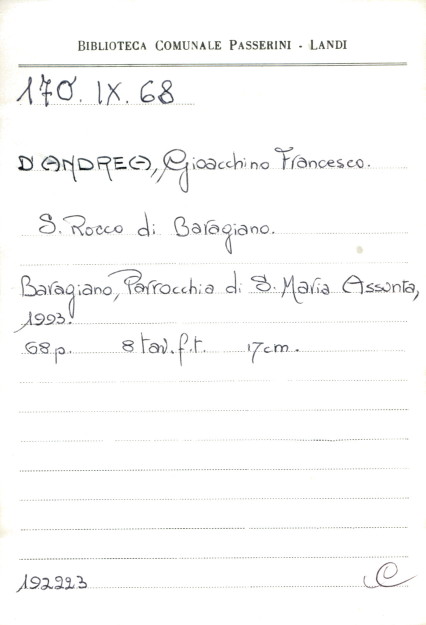 BIBLIOTECA COMUNALE PASSERINI - LANDI
170. IX. 68
D'ANDREA, Gioacchino Francesco.
S. Rocco di Baragiano.
Baragiano, Parrocchia di S. Maria Assunta,
1993.
68 p. 8 tav. f. t. 17 cm.
192223
C